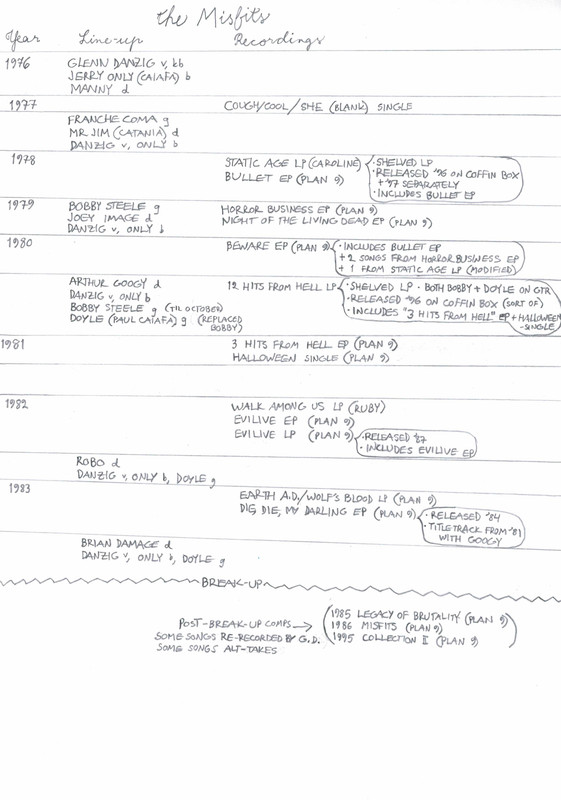 the Misfits
Year Line-up Recordings
1976 GLENN DANZIG v, kb
JERRY ONLY (CAIAFA) b
MANNY d
1977 COUGH/COOL/SHE (BLANK) SINGLE
FRANCHE COMA g
MR JIM (CATANIA) d
DANZIG v, ONLY b
1978 STATIC AGE LP (CAROLINE) • SHELVED LP
• RELEASED '96 ON COFFIN BOX
+ '97 SEPARATELY
BULLET EP (PLAN 9) • INCLUDES BULLET EP
1979 BOBBY STEELE g HORROR BUSINESS EP (PLAN 9)
JOEY IMAGE d NIGHT OF THE LIVING DEAD EP (PLAN 9)
DANZIG v, ONLY b
1980 BEWARE EP (PLAN 9) • INCLUDES BULLET EP
+ 2 SONGS FROM HORROR BUSINESS EP
+ 1 FROM STATIC AGE LP (MODIFIED)
ARTHUR GOOGY d 12 HITS FROM HELL LP • SHELVED LP • BOTH BOBBY + DOYLE ON GTR
DANZIG v, ONLY b • RELEASED '96 ON COFFIN BOX (SORT OF)
BOBBY STEELE g (TIL OCTOBER) • INCLUDES "3 HITS FROM HELL" EP + HALLOWEEN
DOYLE (PAUL CAIAFA) g (REPLACED -SINGLE
BOBBY)
1981 3 HITS FROM HELL EP (PLAN 9)
HALLOWEEN SINGLE (PLAN 9)
1982 WALK AMONG US LP (RUBY)
EVILIVE EP (PLAN 9)
EVILIVE LP (PLAN 9) • RELEASED '87
• INCLUDES EVILIVE EP
ROBO d
DANZIG v, ONLY b, DOYLE g
1983 EARTH A.D./WOLF'S BLOOD LP (PLAN 9)
DIE, DIE, MY DARLING EP (PLAN 9) • RELEASED '84
• TITLE TRACK FROM '81
WITH GOOGY
BRIAN DAMAGE d
DANZIG v, ONLY b, DOYLE g
BREAK-UP
POST-BREAK-UP COMPS → 1985 LEGACY OF BRUTALITY (PLAN 9)
SOME SONGS RE-RECORDED BY G.D. 1986 MISFITS (PLAN 9)
SOME SONGS ALT-TAKES 1995 COLLECTION II (PLAN 9)